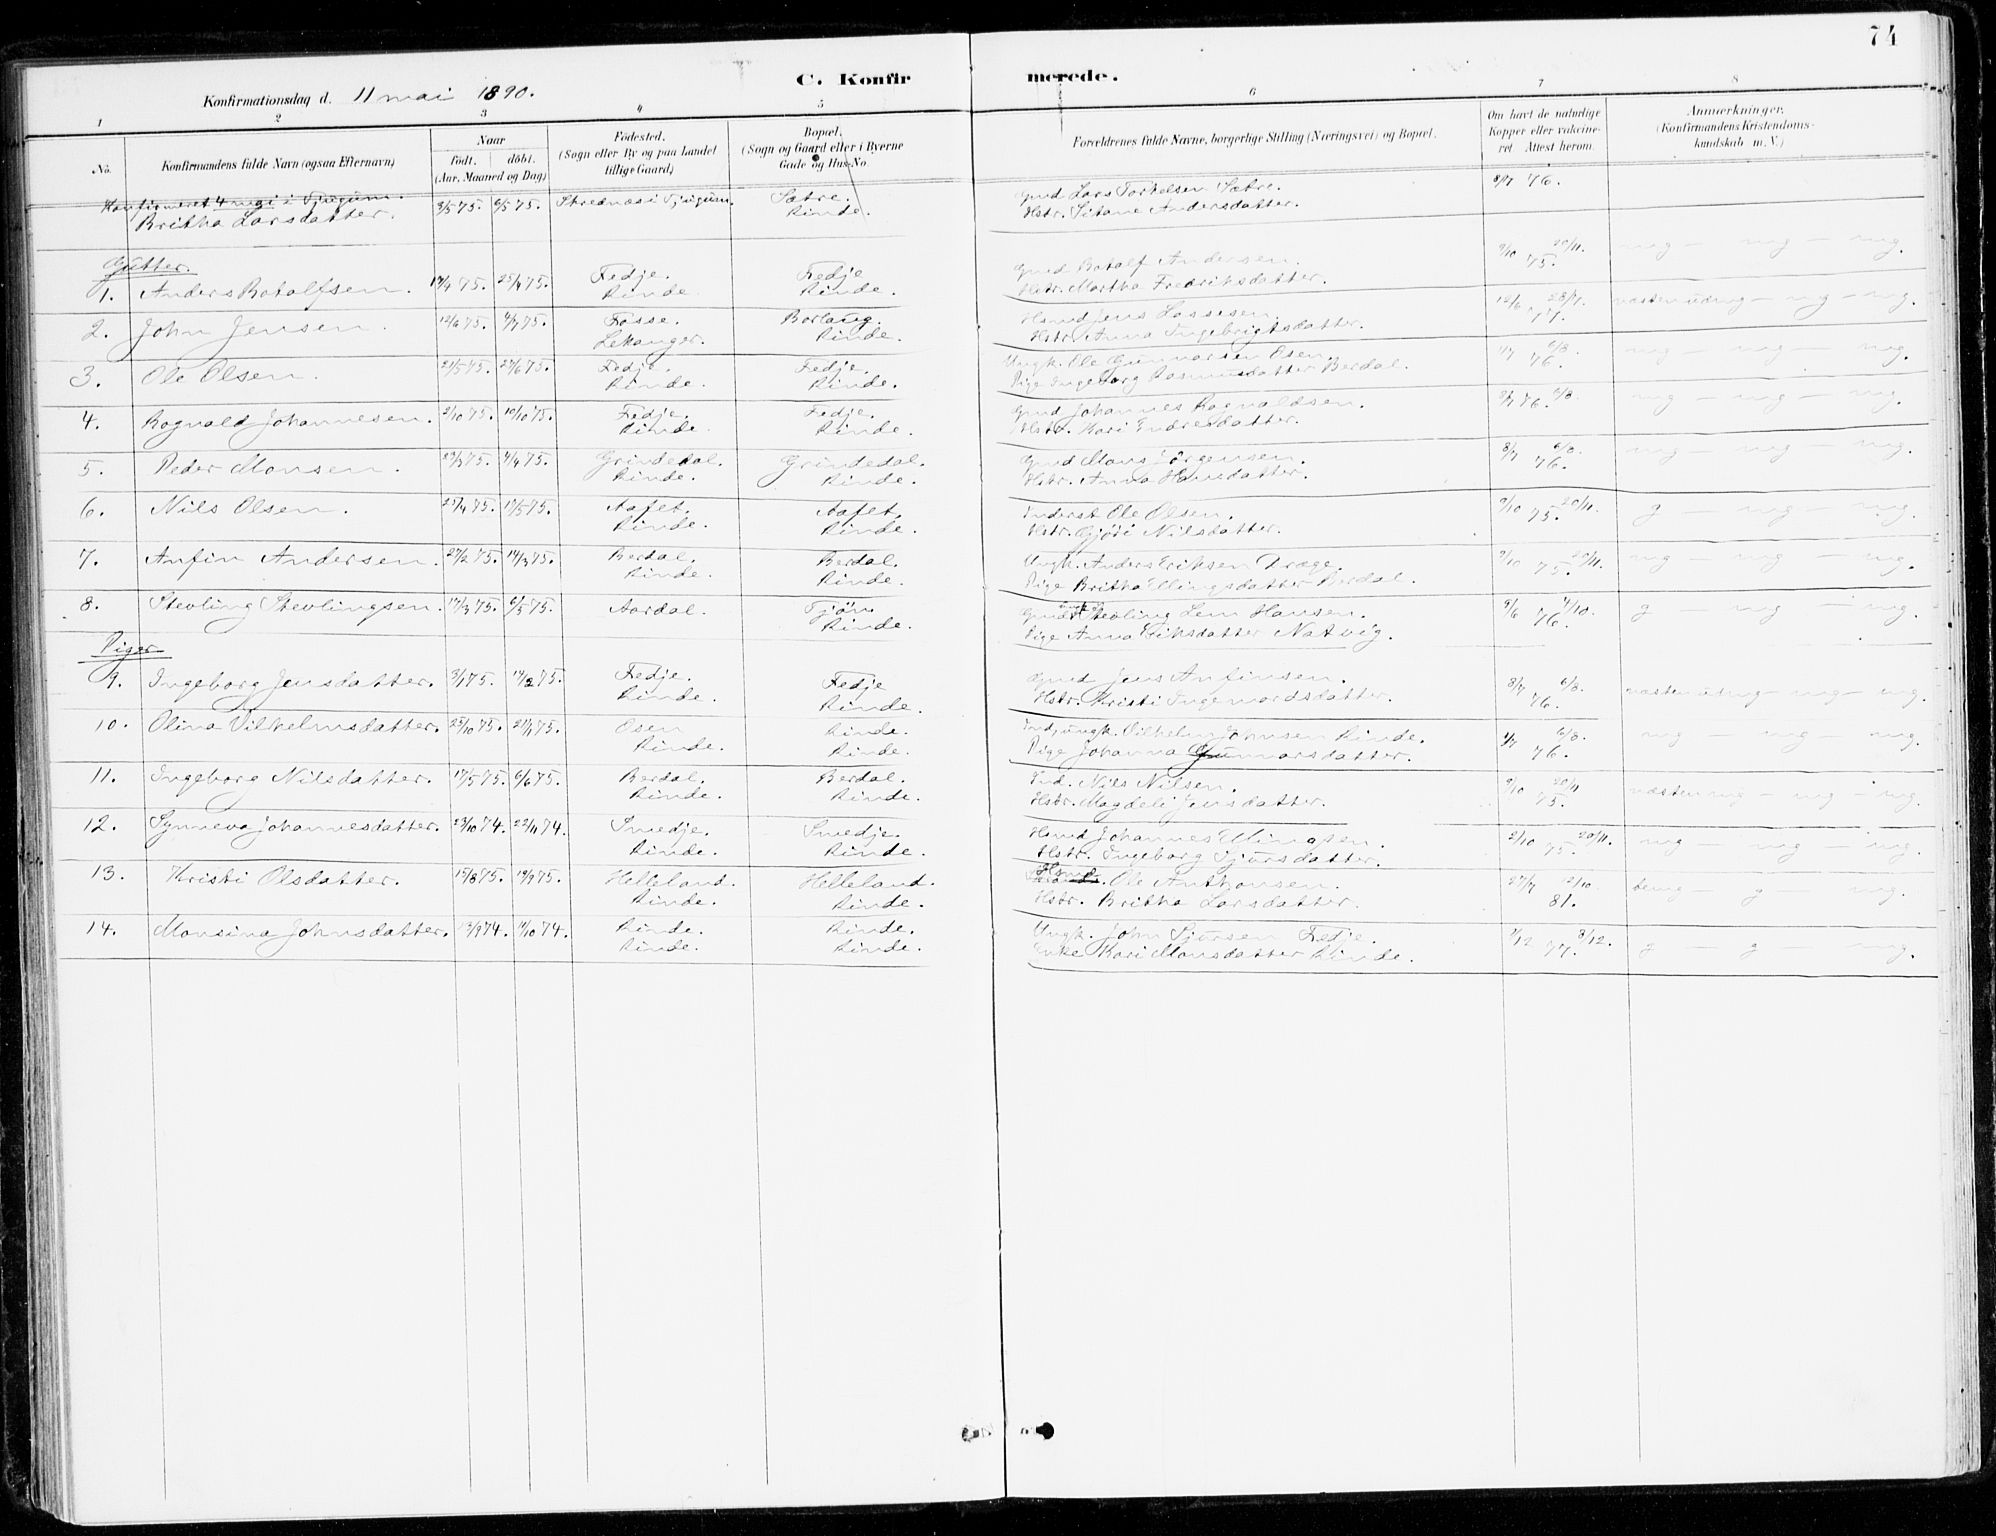 74
C. Konfirmerede.
Konfirmationsdag d. 11 mai 1890.
1 2 3 4 5 6 7 8
No. Konfirmandens fulde Navn (ogsaa Efternavn) Naar født. døbt. (Aar, Maaned og Dag) Fødested. (Sogn eller By og paa Landet tillige Gaard) Bopæl. (Sogn og Gaard eller i Byerne Gade og Hus-No. Forældrenes fulde Navne, borgerlige Stilling (Næringsvei) og Bopæl. Om havt de naturlige Kopper eller vakcineret. Attest herom. Anmærkninger. (Konfirmandens Kristendomskundskab m. V.)
Konfirmeret 4 mai i Tjugum.
Britha Larsdatter. 3/5 75. 6/5 75. Tjugum. Sætre. Rinde. Gmd Lars Torkelsen Sætre. Hstr. Andersdatter. 8/7 76.
Gutter.
1. Anders Botolfsen. 25/4 75. Fedje. Rinde. Fedje Rinde. Gmd Botolf Andersen. Hstr. Martha Fredriksdatter. 9/10 75. 20/11. mg — mg — mg.
2. John Jensen. 12/6 75. 4/7 75. Fosse. Lekanger. Borlaug. Rinde. Hsmd Jens Lassesen. Hstr. Anna Ingebrigtsdatter. 12/6 77. 28/7. næsten udmg — mg — mg.
3. Ole Olsen. 21/5 75. 27/6 75. Fedje. Rinde. Fedje. Rinde. Ungk. Ole Gunnarsen Osen. Pige Ingeborg Rasmusdatter Berdal. 4/7 76. 6/8. mg — mg — mg.
4. Rognald Johannesen. 2/10 75. 10/10 75. Fedje. Rinde. Fedje. Rinde. Gmd Johannes Rognaldsen. Hstr. Kari Endresdatter. 8/7 76. 6/8. mg — mg — mg.
5. Peder Monsen. 23/3 75. 4/4 75. Grindedal. Rinde. Grindedal. Rinde. Gmd Mons Jörgensen. Hstr. Anna Hansdatter. 8/7 76. 6/8. mg — mg — mg.
6. Nils Olsen. 25/4 75. 17/5 75. Aafet. Rinde. Aafet. Rinde. Inderst Ole Olsen. Hstr. Gjöri Nilsdatter. 9/10 75. 20/11. g — mg — mg.
7. Anfin Andersen. 27/2 75. 14/3 75. Berdal. Rinde. Berdal. Rinde. Ungk. Anders Eriksen Dræge. Pige Britha Ellingsdatter Berdal. 9/10 75. 20/11. mg — mg — mg.
8. Stevling Stevlingsen. 17/3 75. 6/5 75. Aardal. Tjön Rinde. Stevling Lem Hansen. Pige Anna Eriksdatter Natvig. 9/6 76. 4/10. g mg — mg.
Piger
9. Ingeborg Jensdatter. 3/1 75. 14/2 75. Fedje. Rinde. Fedje Rinde. Gmd Jens Anfinsen. Hstr. Kristi Ingemordsdatter. 8/7 76. 6/8. næsten udmg — mg — mg.
10. Olina Vilhelmsdatter. 25/10 75. 21/11 75. Osen Rinde. Rinde. Rinde. Vilhelm Johnsen Rinde. Pige Johanna Gunnarsdatter. 4/7 76. 6/8. mg — mg — mg.
11. Ingeborg Nilsdatter. 17/5 75. 6/6 75. Berdal. Rinde. Berdal. Rinde. Ind. Nils Nilsen. Hstr. Magdeli Jensdatter. 9/10 75. 20/11 næsten mg — mg — mg.
12. Synneva Johannesdatter. 23/10 74. 22/11 74. Smedje. Rinde. Smedje. Rinde. Hsmd Johannes Ellingsen. Hstr. Ingeborg Sjursdatter. 2/10 75. 20/11. mg — mg — mg.
13. Kristi Olsdatter. 15/8 75. 19/9 75. Helleland. Rinde. Helleland. Rinde. Hsmd. Ole Anthonsen. Hstr. Britha Larsdatter. 27/7 81. 12/10. temg — g mg.
14. Monsina Johnsdatter. 13/9 74. 11/10 74. Rinde. Rinde. Rinde. Rinde. Ungk. John Sjursen Fedje. Enke Kari Monsdatter Rinde. 1/12 77. 8/12. g — g mg.